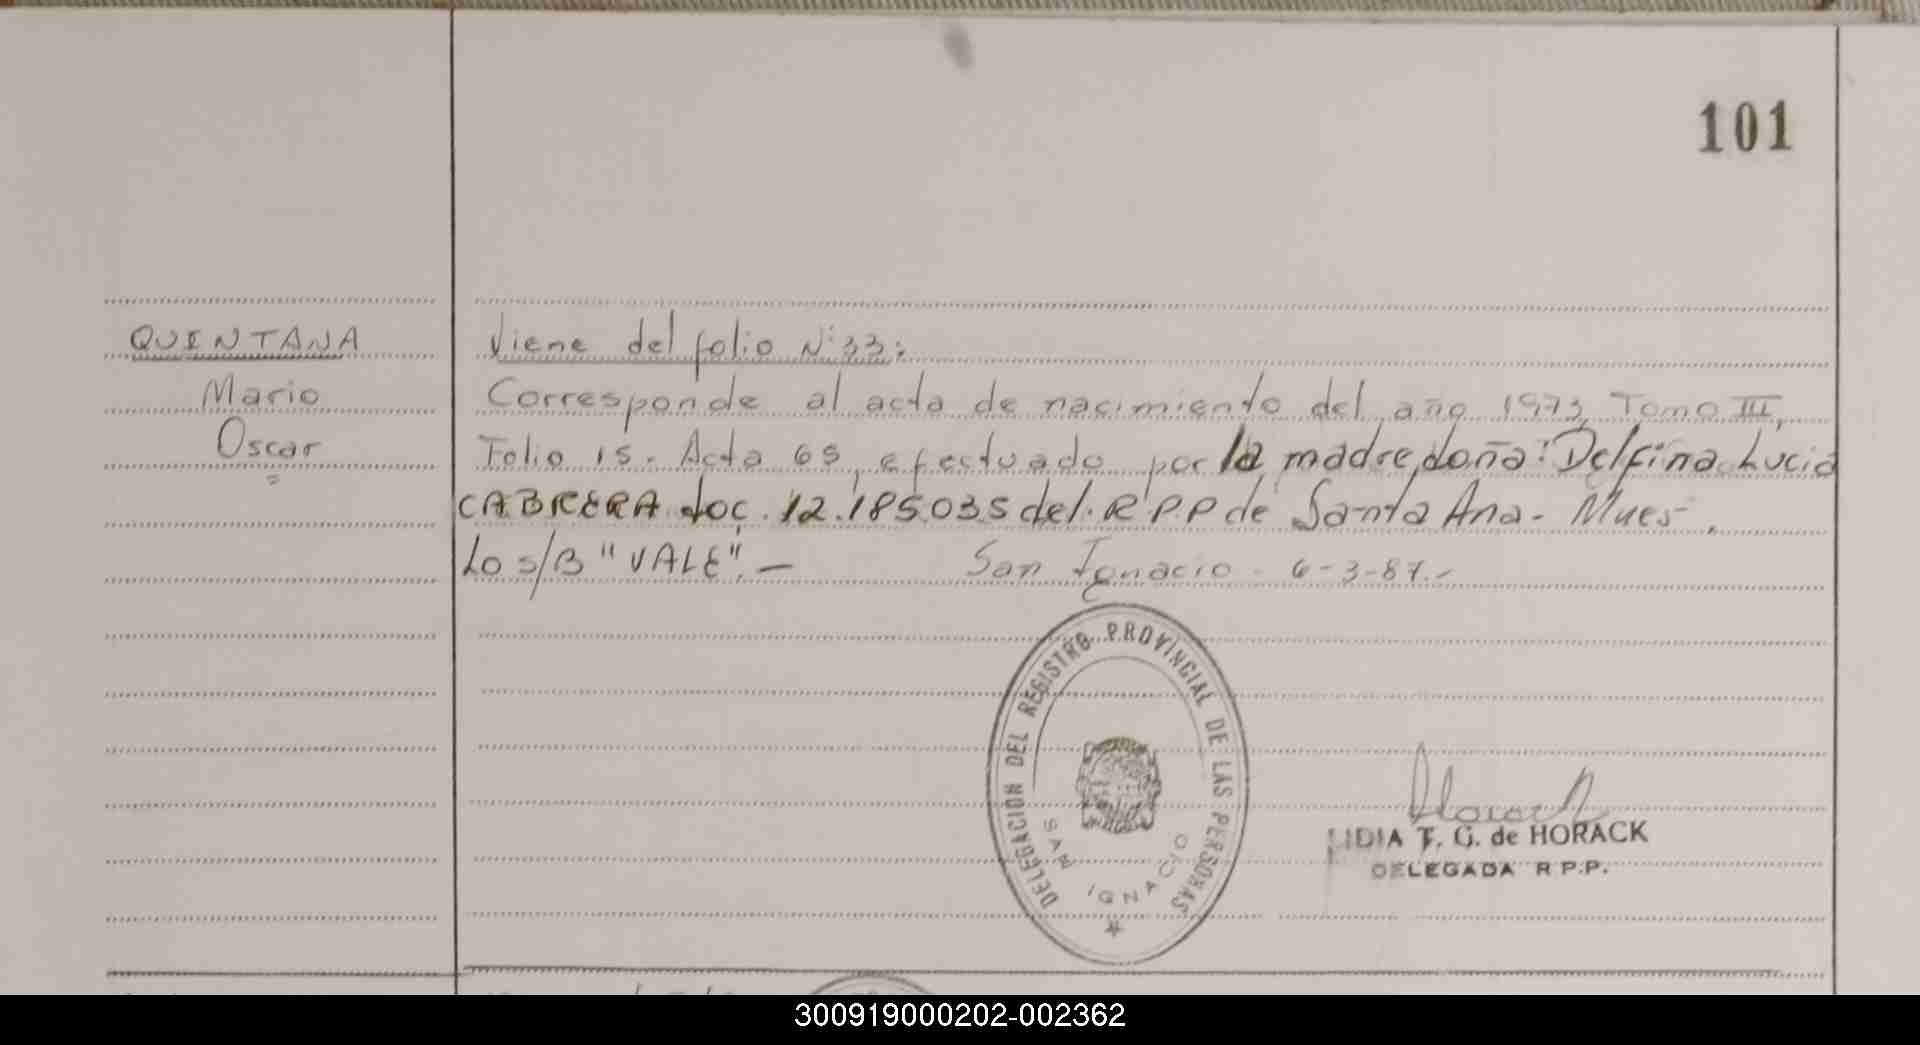 101
QUINTANA
Mario
Oscar
Viene del folio N° 33:
Corresponde al acta de nacimiento del año 1973, Tomo III,
Folio 15. Acta 65, efectuado por la madre, doña: Delfina Lucia
CABRERA doc. 12.185.035 del. R.P.P de Santa Ana - Mnes -.
Lo s/B "VALE". —
San Ignacio - 6-3-87.-
DELEGACION DEL REGISTRO PROVINCIAL DE LAS PERSONAS
SAN IGNACIO
Horack
LIDIA T. G. de HORACK
DELEGADA R P.P.
300919000202-002362